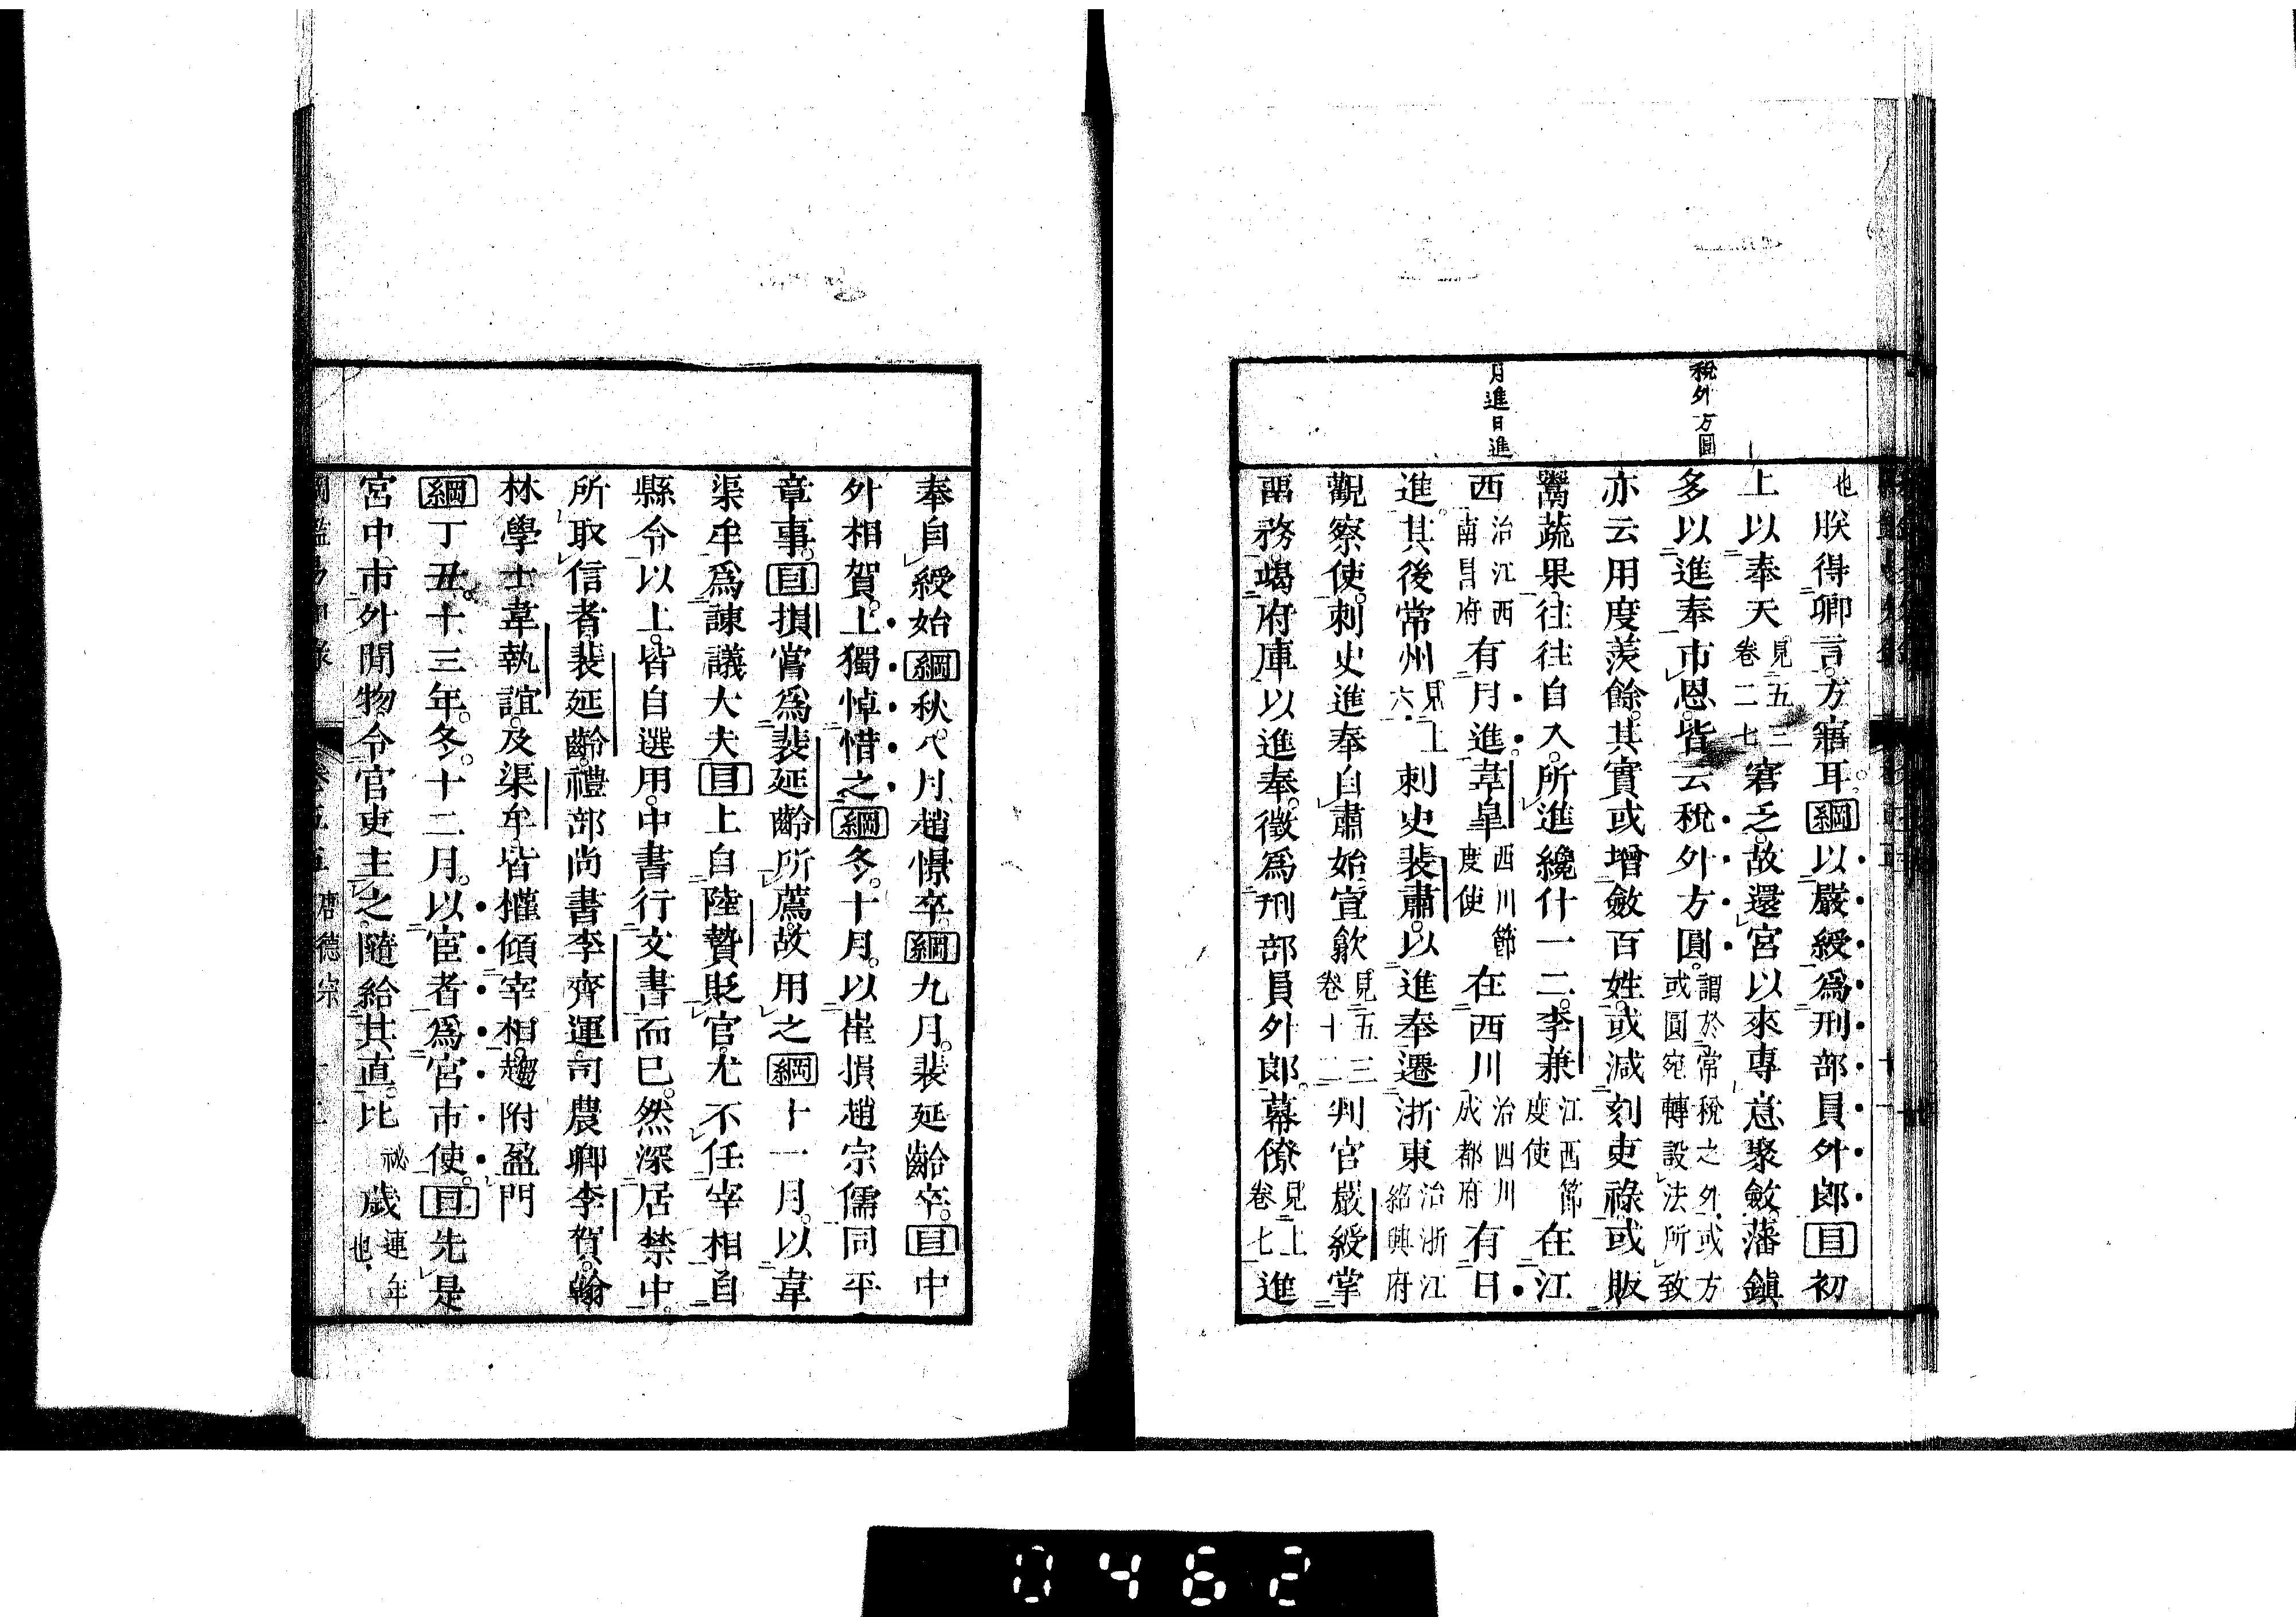 稅外方圓
月進日進
也朕得卿言方寤耳綱以嚴綬爲刑部員外郎目初
上以奉天見五二卷二七窘乏故還宮以來專意聚斂藩鎮
多以進奉市恩皆云稅外方圓謂於常稅之外或方或圓宛轉設法所致
亦云用度羨餘其實或增斂百姓或減刻吏祿或販
鬻蔬果往往自入所進纔什一二李兼江西節度使在江
西治江西南昌府有月進韋皐西川節度使在西川治四川成都府有日
進其後常州見上六刺史裴肅以進奉遷浙東治浙江紹興府
觀察使刺史進奉自肅始宣歙見五三卷十二判官嚴綬掌
畱務竭府庫以進奉徵爲刑部員外郎幕僚見上卷七進
奉自綬始綱秋八月趙憬卒綱九月裴延齡卒目中
外相賀上獨悼惜之綱冬十月以崔損趙宗儒同平
章事目損嘗爲裴延齡所薦故用之綱十一月以韋
渠牟爲諫議大夫目上自陸贄貶官尤不任宰相自
縣令以上皆自選用中書行文書而已然深居禁中
所取信者裴延齡禮部尚書李齊運司農卿李賀翰
林學士韋執誼及渠牟皆權傾宰相趨附盈門
綱丁丑十三年冬十二月以宦者爲宮市使目先是
宮中市外閒物令官吏主之隨給其直比祕歲連年也
唐德宗
0462